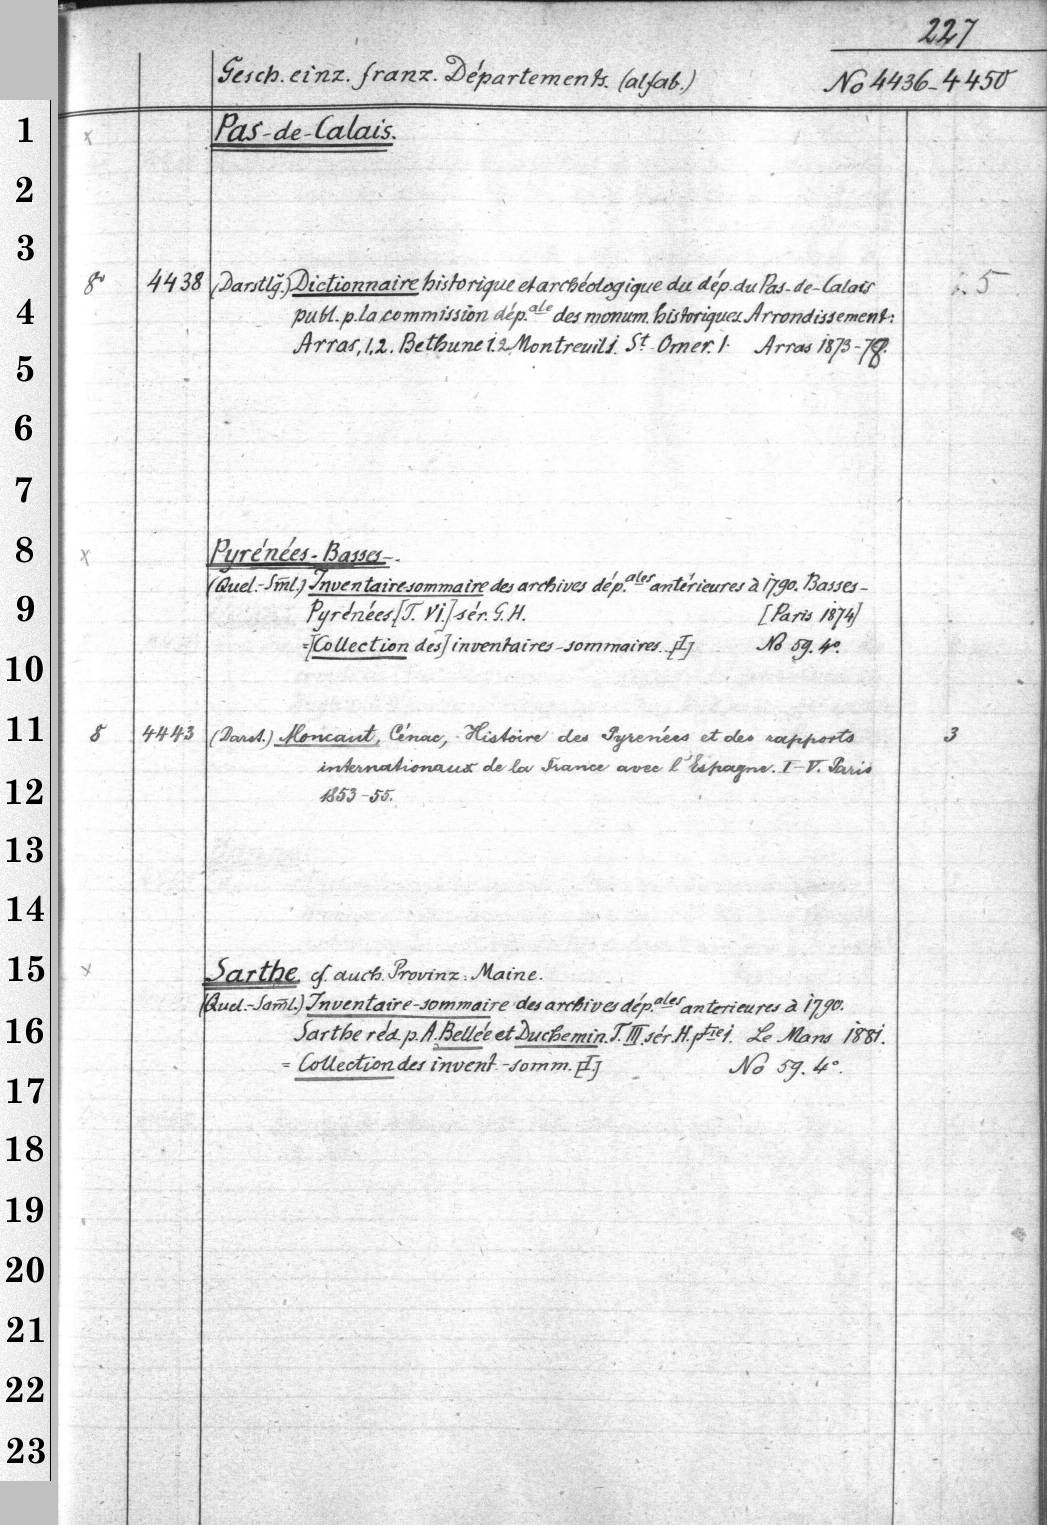 227
Gesch. einz. franz. Départements. (alfab.) No 4436-4450
1 x Pas-de-Calais.
2
3
8º 4438 (Darstlg.) Dictionnaire historique et archéologique du dép. du Pas-de-Calais 5
4 publ. p. la commission dép.ale des monum. historiques. Arrondissement:
5 Arras, 1,2. Bethune 1.2. Montreuil 1. St. Omer. 1. Arras 1873-78.
6
7
8 x Pyrénées-Basses-.
(Quel.-Sml.) Inventaire sommaire des archives dép.ales antérieures à 1790. Basses-
9 Pyrénées. [T. VI.] sér. G.H. [Paris 1874]
=[Collection des] inventaires-sommaires. [I] No 59. 4º.
10
11 8 4443 (Darst.) Moncaut, Cénac, Histoire des Pyrenées et des rapports 3
internationaux de la France avec l'Espagne. I-V. Paris
12 1853-55.
13
14
15 x Sarthe, cf. auch Provinz: Maine.
(Quel.-Saml.) Inventaire-sommaire des archives dép.ales anterieures à 1790.
16 Sarthe réd. p. A. Bellée et Duchemin. T. III. sér. H. ptie 1. Le Mans 1881.
= Collection des invent.-somm. [I] No 59. 4º.
17
18
19
20
21
22
23